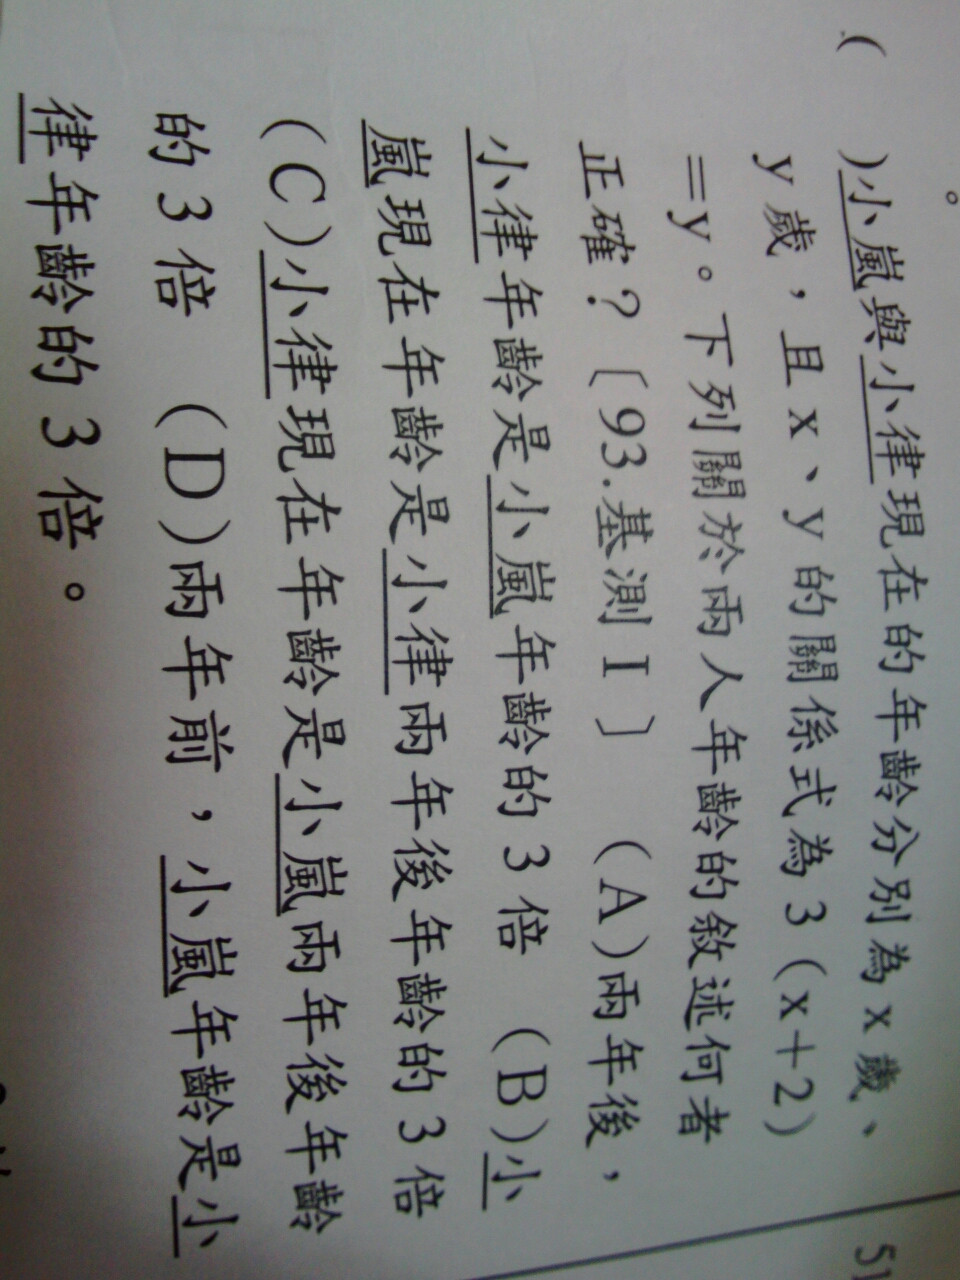 。
( )小嵐與小律現在的年齡分別為x歲、
y歲，且x、y的關係式為3(x+2)
=y。下列關於兩人年齡的敘述何者
正確？〔93.基測I〕 (A)兩年後，
小律年齡是小嵐年齡的3倍 (B)小
嵐現在年齡是小律兩年後年齡的3倍
(C)小律現在年齡是小嵐兩年後年齡
的3倍 (D)兩年前，小嵐年齡是小
律年齡的3倍。
51